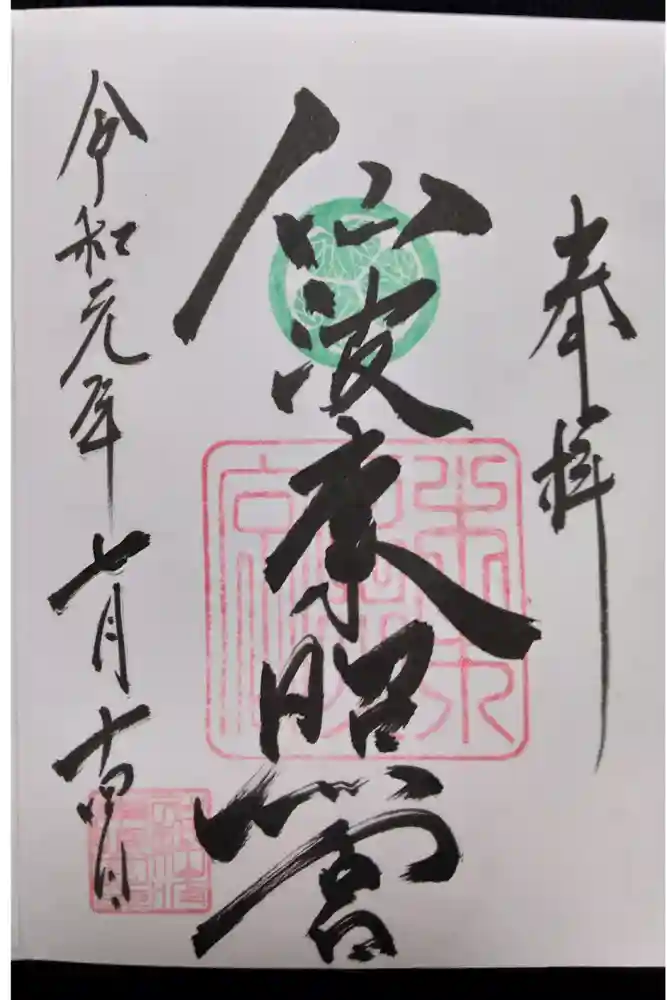 奉拝
仙波東照宮
令和元年七月十四日